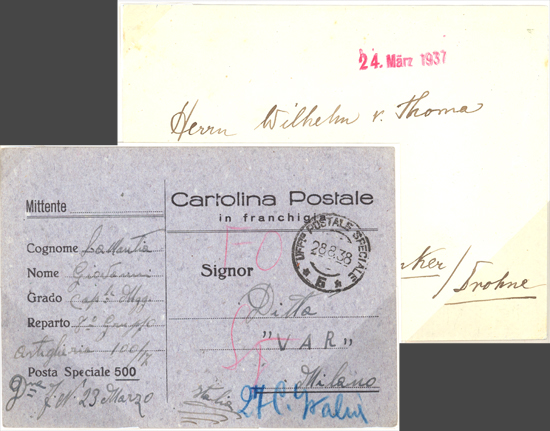 24. März 1937
Herrn Wilhelm v. Thoma
ker/Drohne
Mittente
Cartolina Postale
in franchigia
Cognome La Mantia
Nome Giovanni
Grado Cap. Magg.
Reparto 1° Gruppo
artiglieria 100/17
Posta Speciale 500
23 Marzo
Signor
Ditta
"VAR"
Milano
Italia
UFF° POSTALE SPECIALE
28.8.38
* 5 *
27 C.